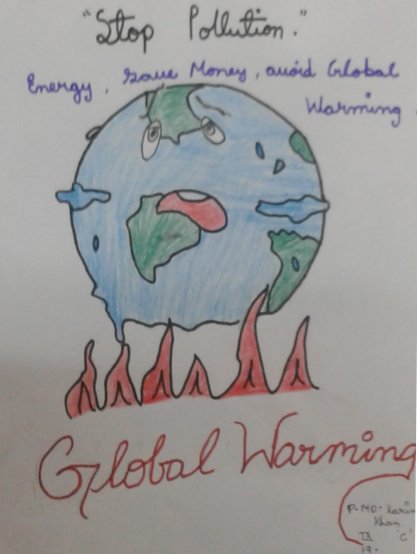 "Stop Pollution."
Energy, save Money, avoid Global
Warming.
Global Warming
P. MD. Karim
Khan
IX 'C'
19.